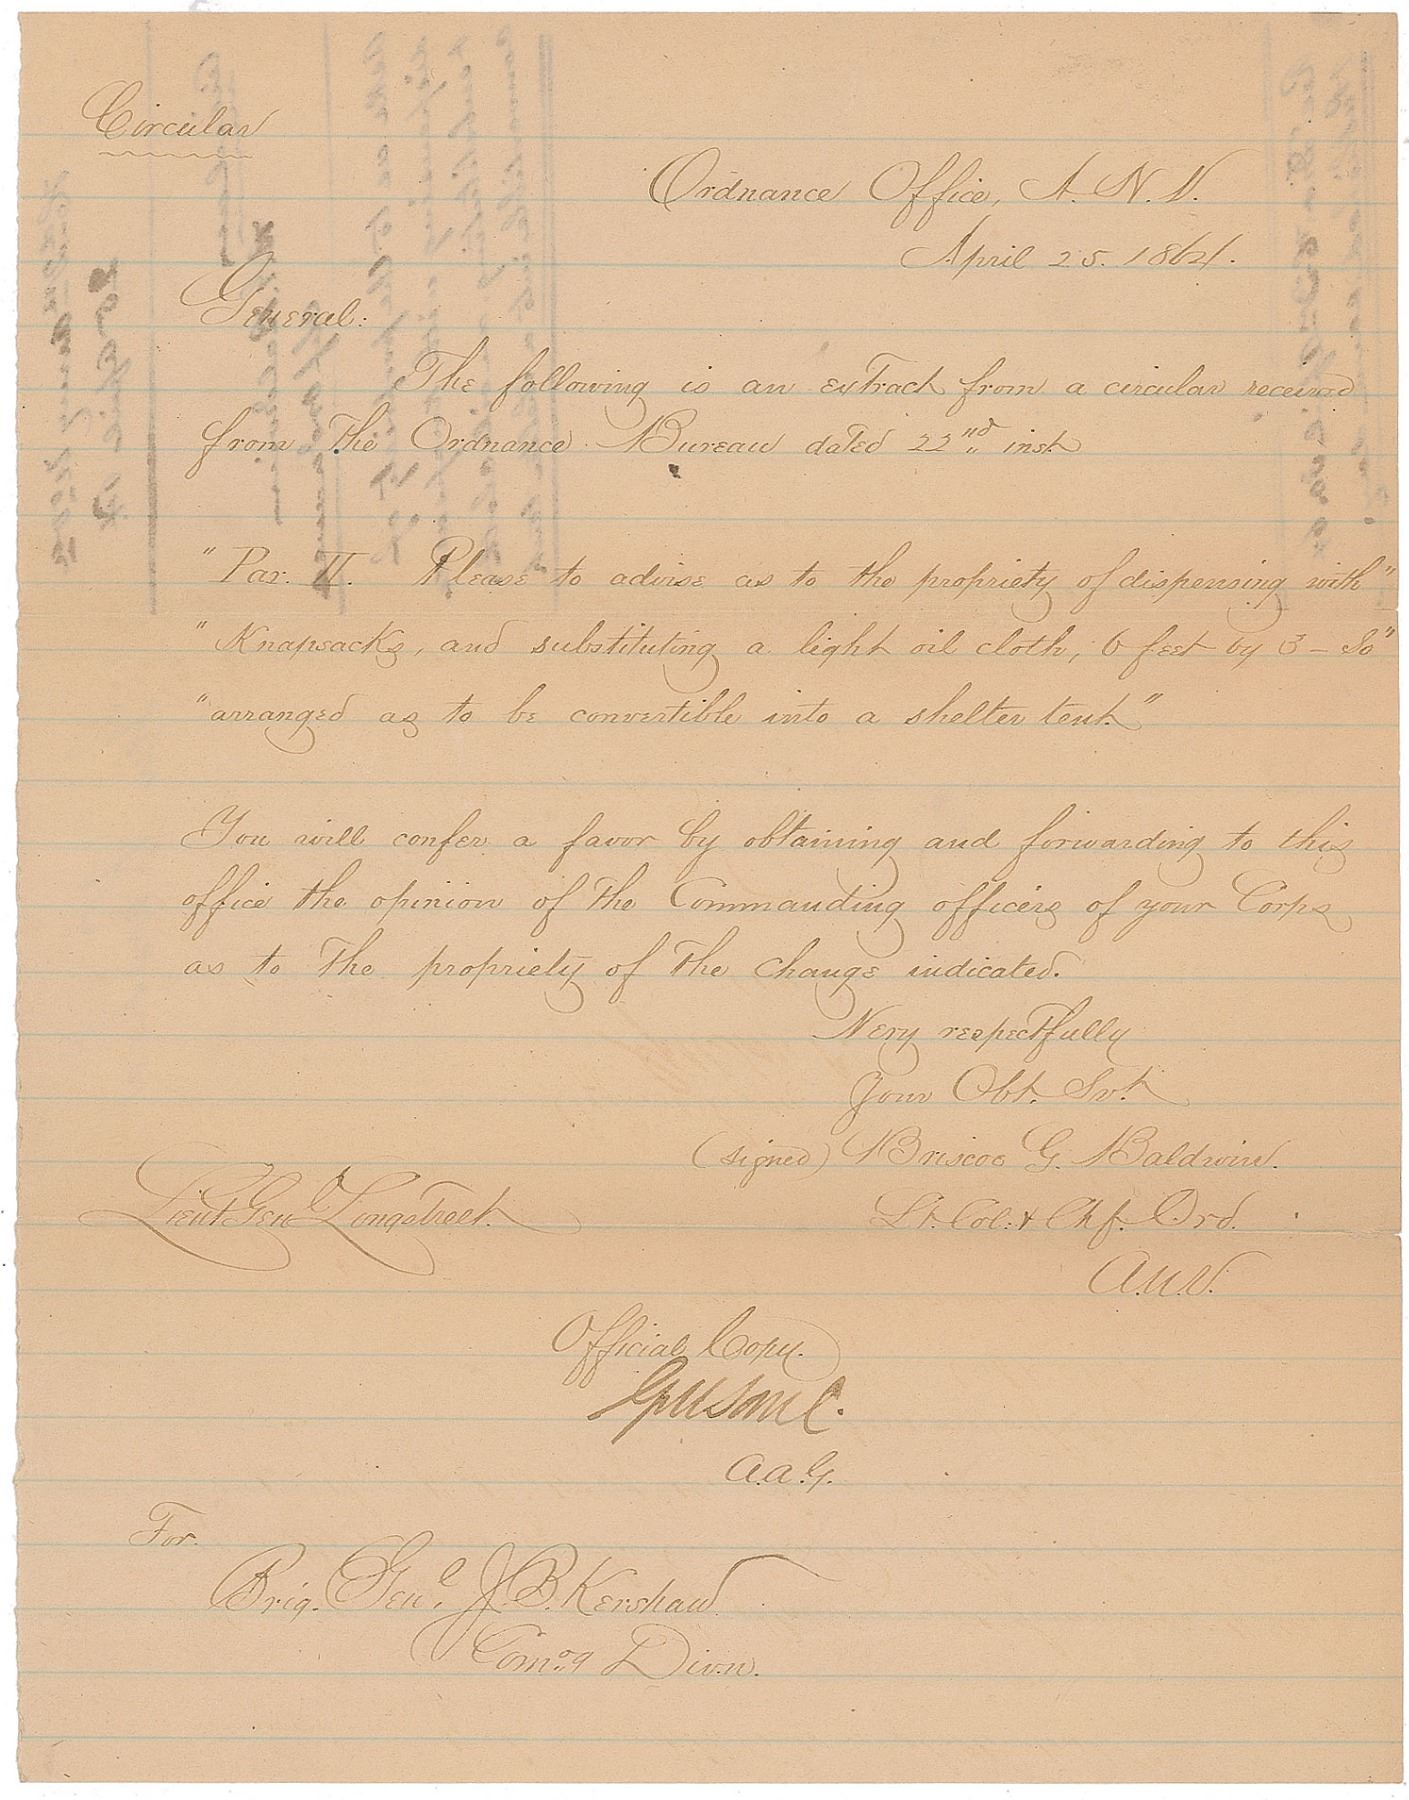 Circular
Ordnance Office, A. N. V.
April 25. 1864.
General:
The following is an extract from a circular received
from the Ordnance Bureau dated 22nd inst
"Par. II. Please to advise as to the propriety of dispensing with"
"Knapsacks, and substituting a light oil cloth, 6 feet by 3 – So"
"arranged as to be convertible into a shelter tent"
You will confer a favor by obtaining and forwarding to this
office the opinion of the Commanding officers of your Corps
as to the propriety of the change indicated.
Very respectfully
Your Obt. Svt.
(signed) Briscoe G. Baldwin.
Lieut Gen Longstreet.
Lt. Col. & Chf. Ord.
A.N.V.
Official Copy.
A.A.G.
For
Brig. Genl. J. B. Kershaw
Comdg Divn.